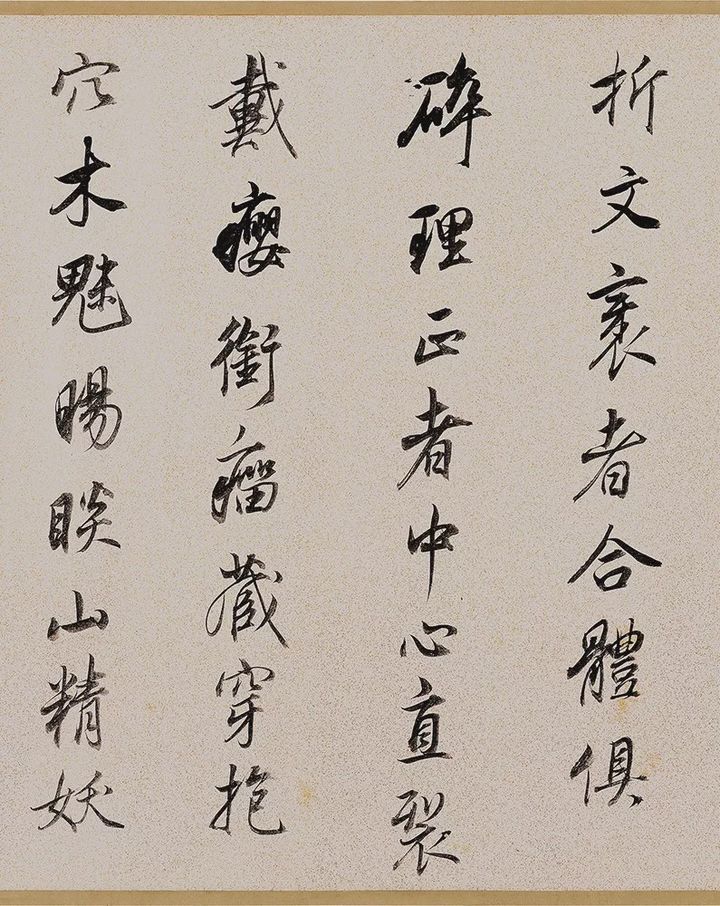 折文衺者合體俱
碎理正者中心直裂
戴癭銜瘤藏穿抱
穴木魅暘睒山精妖